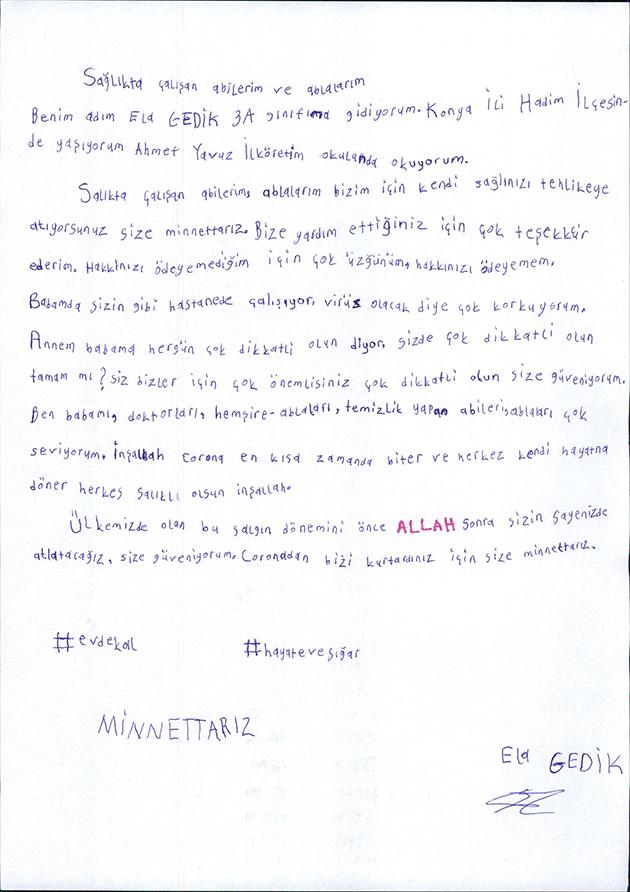 Sağlıkta çalışan abilerim ve ablalarım
Benim adım Ela GEDİK 3A sınıfına gidiyorum. Konya İli Hadim İlçesin-
de yaşıyorum Ahmet Yavuz İlköretim okulunda okuyorum.
Salıkta çalışan abilerim, ablalarım bizim için kendi sağlınızı tehlikeye
atıyorsunuz size minnettarız. Bize yardım ettiğiniz için çok teşekkür
ederim. Hakkınızı ödeyemediğim için çok üzgünüm, hakkınızı ödeyemem.
Babamda sizin gibi hastanede çalışıyor, virüs olacak diye çok korkuyorum.
Annem babama hergün çok dikkatli olun diyor, sizde çok dikkatli olun
tamam mı? siz bizler için çok önemlisiniz çok dikkatli olun size güveniyorum.
Ben babamı, doktorları, hemşire-ablaları, temizlik yapan abileri, ablaları çok
seviyorum. İnşallah corona en kısa zamanda biter ve herkez kendi hayatna
döner herkes salıklı olsun inşallah.
Ülkemizde olan bu salgın dönemini önce ALLAH sonra sizin sayenizde
atlatacağız, size güveniyorum. Coronadan bizi kurtardınız için size minnettarız.
#evdekal #hayatevesığar
MİNNETTARIZ
Ela GEDİK